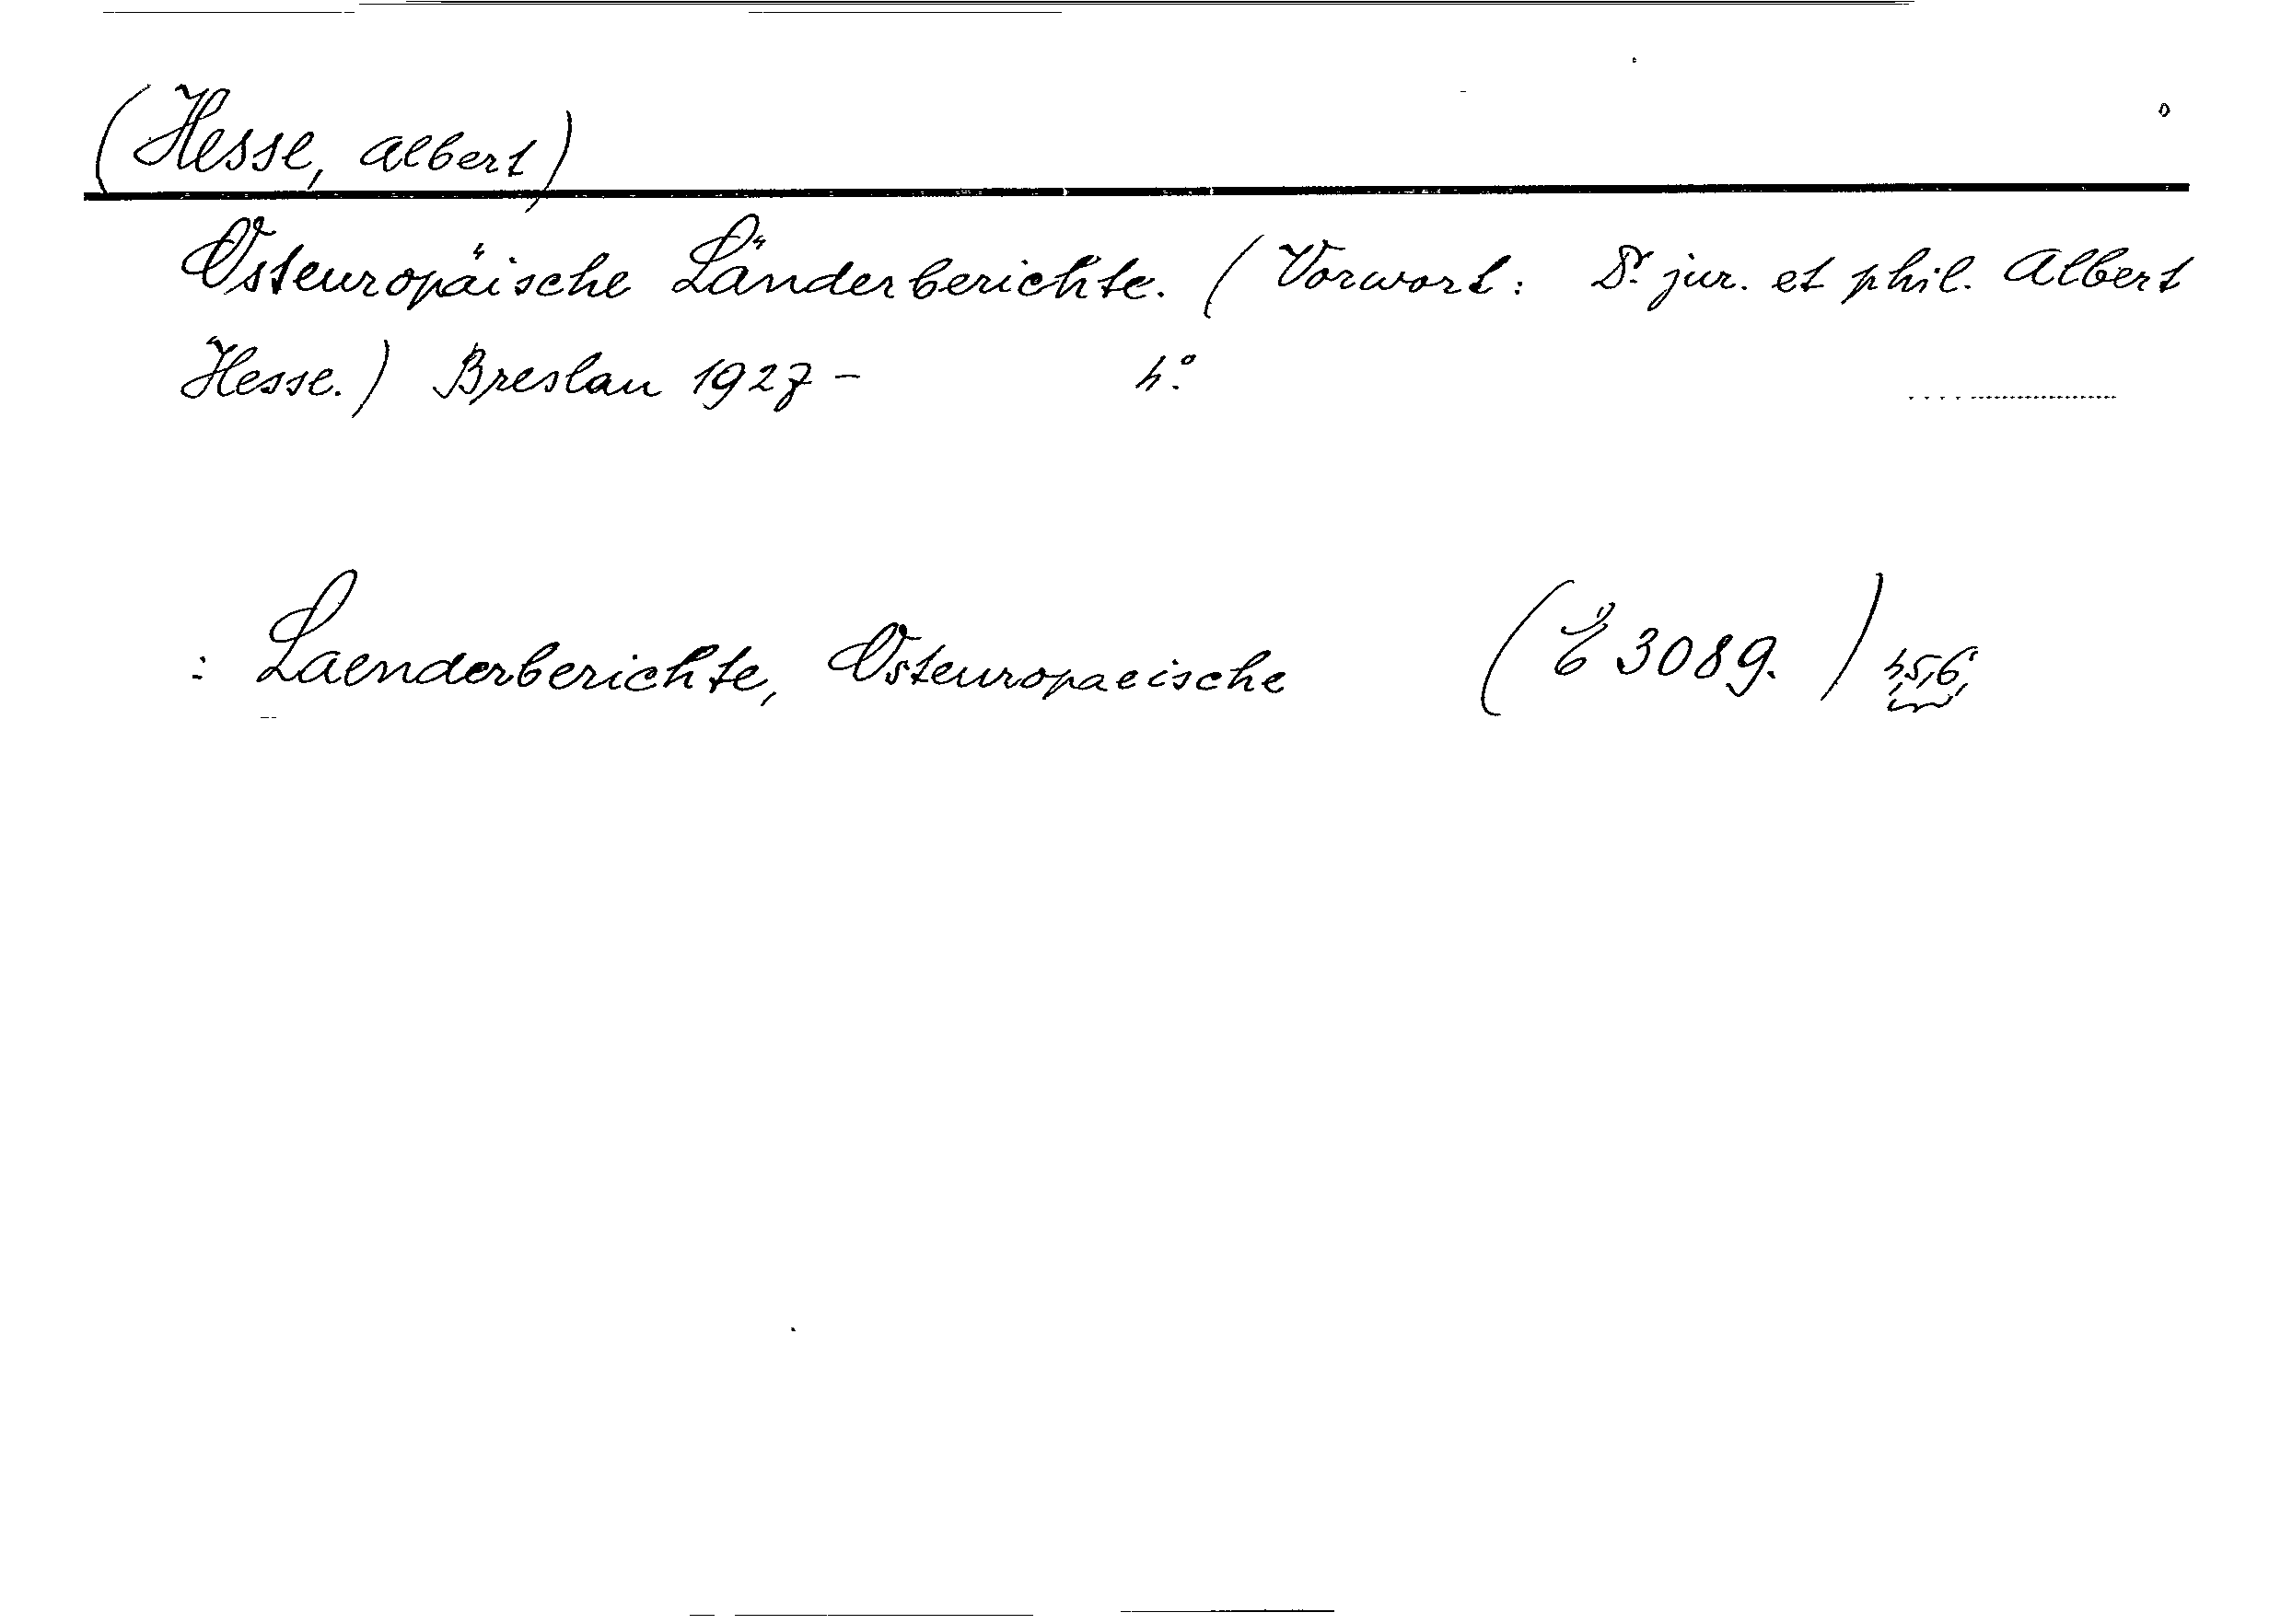 (Hesse, Albert)
Osteuropäische Länderberichte. (Vorwort: Dr. jur. et phil. Albert
Hesse.) Breslau 1927 - 4°.
: Laenderberichte, Osteuropaeische (E 3089.)